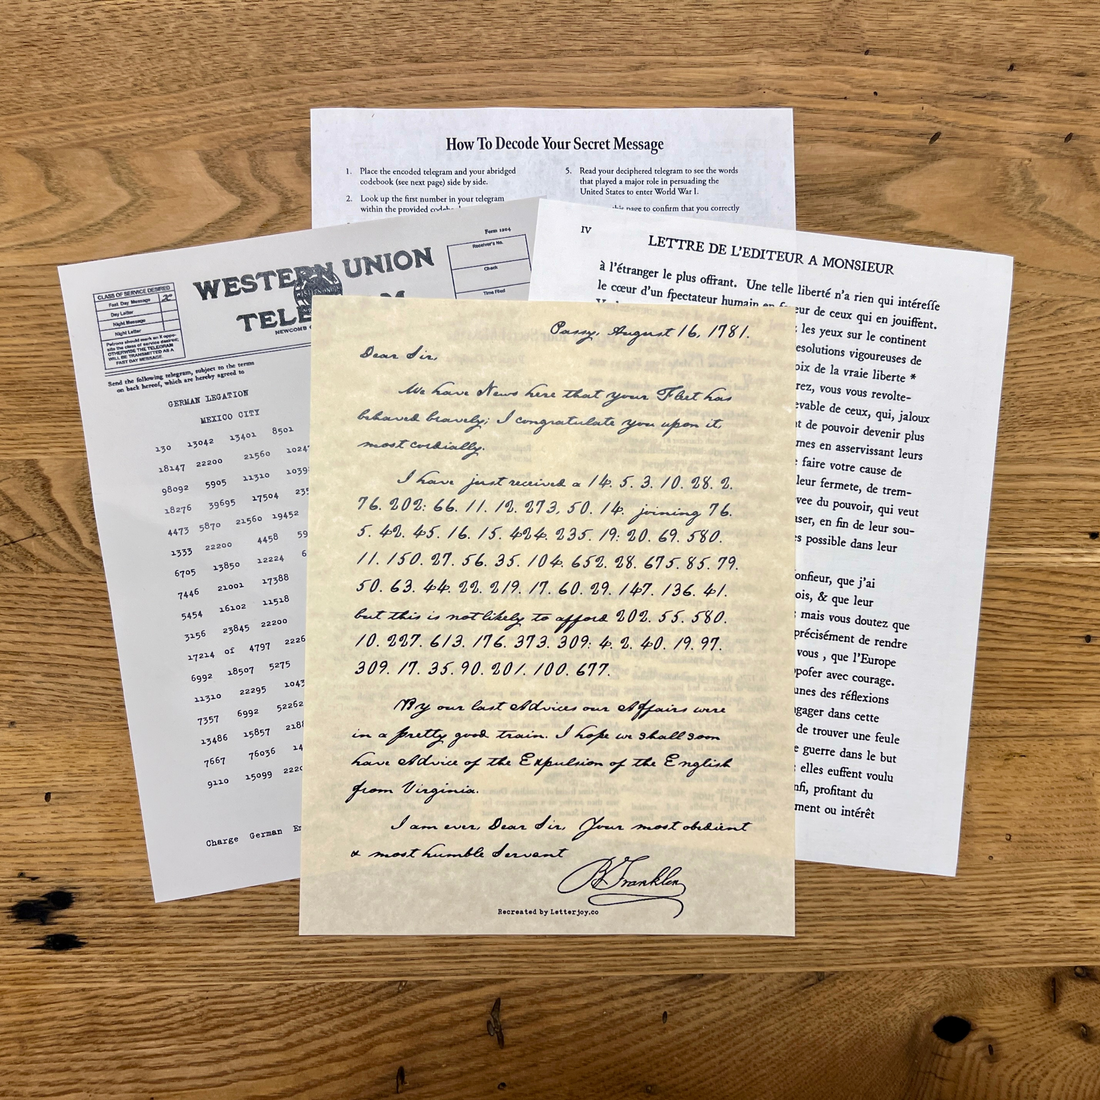 How To Decode Your Secret Message
1. Place the encoded telegram and your abridged
codebook (see next page) side by side.
2. Look up the first number in your telegram
within the provided
5. Read your deciphered telegram to see the words
that played a major role in persuading the
United States to enter World War I.
this page to confirm that you correctly
WESTERN UNION
Form 1204
CLASS OF SERVICE DESIRED
Fast Day Message x
Day Letter
Night Message
Night Letter
Patrons should mark an X oppo-
site the class of service desired;
OTHERWISE THE TELEGRAM
WILL BE TRANSMITTED AS A
FAST DAY MESSAGE.
Receiver's No.
Check
Time Filed
Send the following telegram, subject to the terms
on back hereof, which are hereby agreed to
GERMAN LEGATION
MEXICO CITY
130 13042 13401 8501
18147 22200 21560
98092 5905 11310
18276 39695 17504
4473 5870 21560 19452
1333 22200 4458
6705 13850 12224
7446 21001 17388
5454 16102 11518
3156 23845 22200
17214 of 4797
6992 18507 5275
11310 22295
7357 6992
13486 15857
7667 76036
9110 15099
Charge German
IV
LETTRE DE L'EDITEUR A MONSIEUR
à l'étranger le plus offrant. Une telle liberté n'a rien qui intéreſſe
le cœur d'un ſpectateur humain en
eur de ceux qui en jouiffent.
les yeux sur le continent
esolutions vigoureuses de
oix de la vraie liberte *
rez, vous vous revolte-
evable de ceux, qui, jaloux
t de pouvoir devenir plus
mes en asservissant leurs
faire votre cause de
leur fermete, de trem-
vee du pouvoir, qui veut
user, en fin de leur sou-
s possible dans leur
onfieur, que j'ai
ois, & que leur
mais vous doutez que
précisément de rendre
vous , que l'Europe
pofer avec courage.
unes des réflexions
ngager dans cette
de trouver une feule
e guerre dans le but
elles euffent voulu
nfi, profitant du
ment ou intérêt
Passy, August 16, 1781.
Dear Sir,
We have News here that your Fleet has
behaved bravely; I congratulate you upon it,
most cordially.
I have just received a 14. 5. 3. 10. 28. 2.
76. 202: 66. 11. 12. 273. 50. 14. joining 76.
5. 42. 45. 16. 15. 424. 235. 19: 20. 69. 580.
11. 150. 27. 56. 35. 104. 652. 28. 675. 85. 79.
50. 63. 44. 22. 219. 17. 60. 29. 147. 136. 41.
but this is not likely to afford 202. 55. 580.
10. 227. 613. 176. 373. 309: 4. 2. 40. 19. 97.
309. 17. 35. 90. 201. 100. 677.
By our last Advices our Affairs were
in a pretty good train. I hope we shall soon
have Advice of the Expulsion of the English
from Virginia.
I am ever, Dear Sir, Your most obedient
& most humble Servant
B Franklin
Recreated by Letterjoy.co